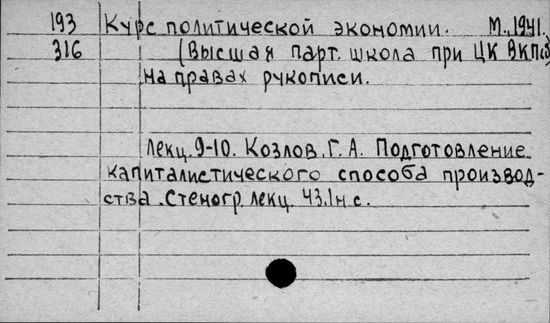 193 Курс политической экономии. М., 1941.
316 (Высшая парт. школа при ЦК ВКП(б)
на правах рукописи.
Лекц. 9-10. Козлов. Г. А. Подготовление
капиталистического способа производ-
ства. Стеногр. лекц. 43.1н с.